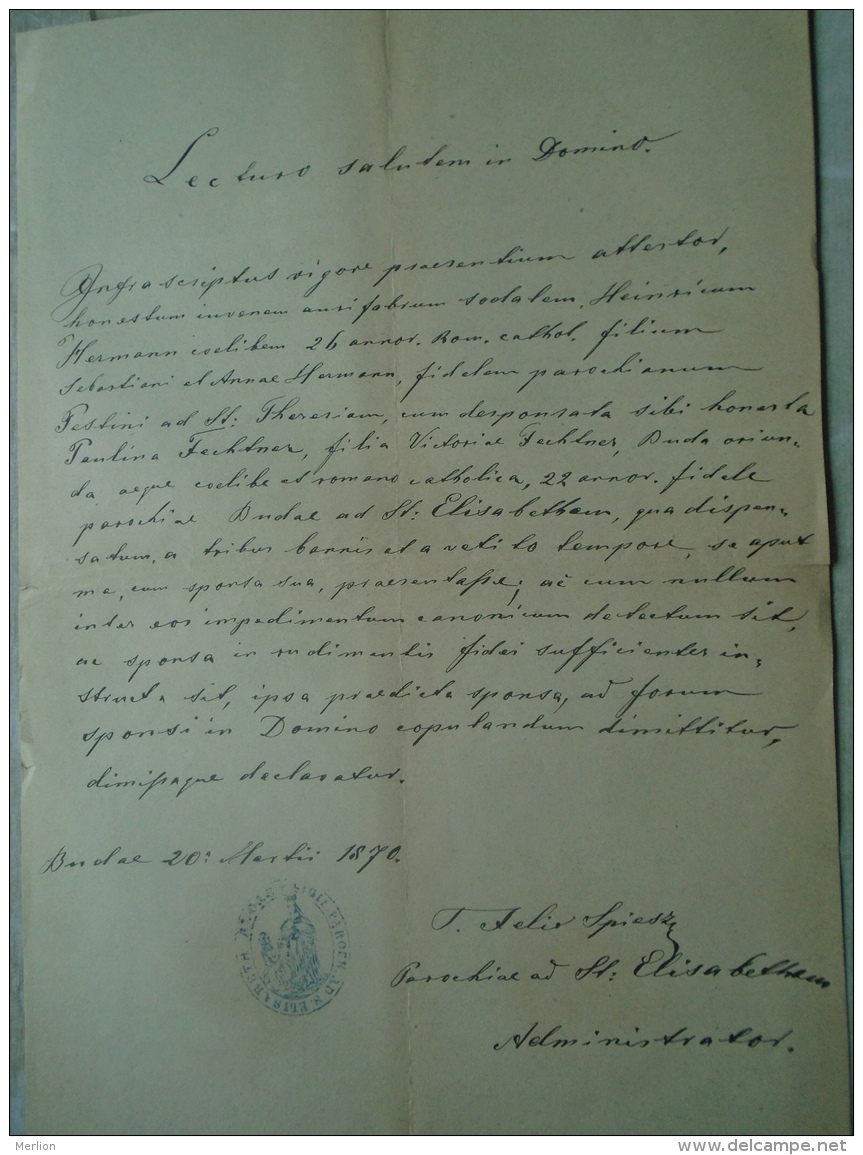 Lecturo salutem in Domino.
Infrascriptus vigore praesentium attestor,
honestum iuvenem aurifabrum sodalem, Heinricum
Hermann coelibem 26 annor. Rom. cathol. filium
Sebastiani et Annae Hermann, fidelem parochianum
Pestini ad St: Theresiam, cum desponsata sibi honesta
Paulina Fechtner, filia Victoriae Fechtner, Buda oriun=
da aeque coelibe et romano catholica, 22 annor. fidele
parochiae Budae ad St: Elisabetham, qua dispen=
satum, a tribus bannis et a vetito tempore, se aput
me, cum sponsa sua, praesentasse; ac cum nullum
inter eos impedimentum canonicum detectum sit,
ac sponsa in rudimentis fidei sufficienter in=
structa sit, ipsa praedicta sponsa, ad forum
sponsi in Domino copulandum dimittitur,
dimissaque declaratur.
Budae 20: Martii 1870.
PAROCH. AD S. ELISABETH
T. Felix Spiesz
Parochiae ad St: Elisabetham
Administrator.
Merlion
www.delcampe.net